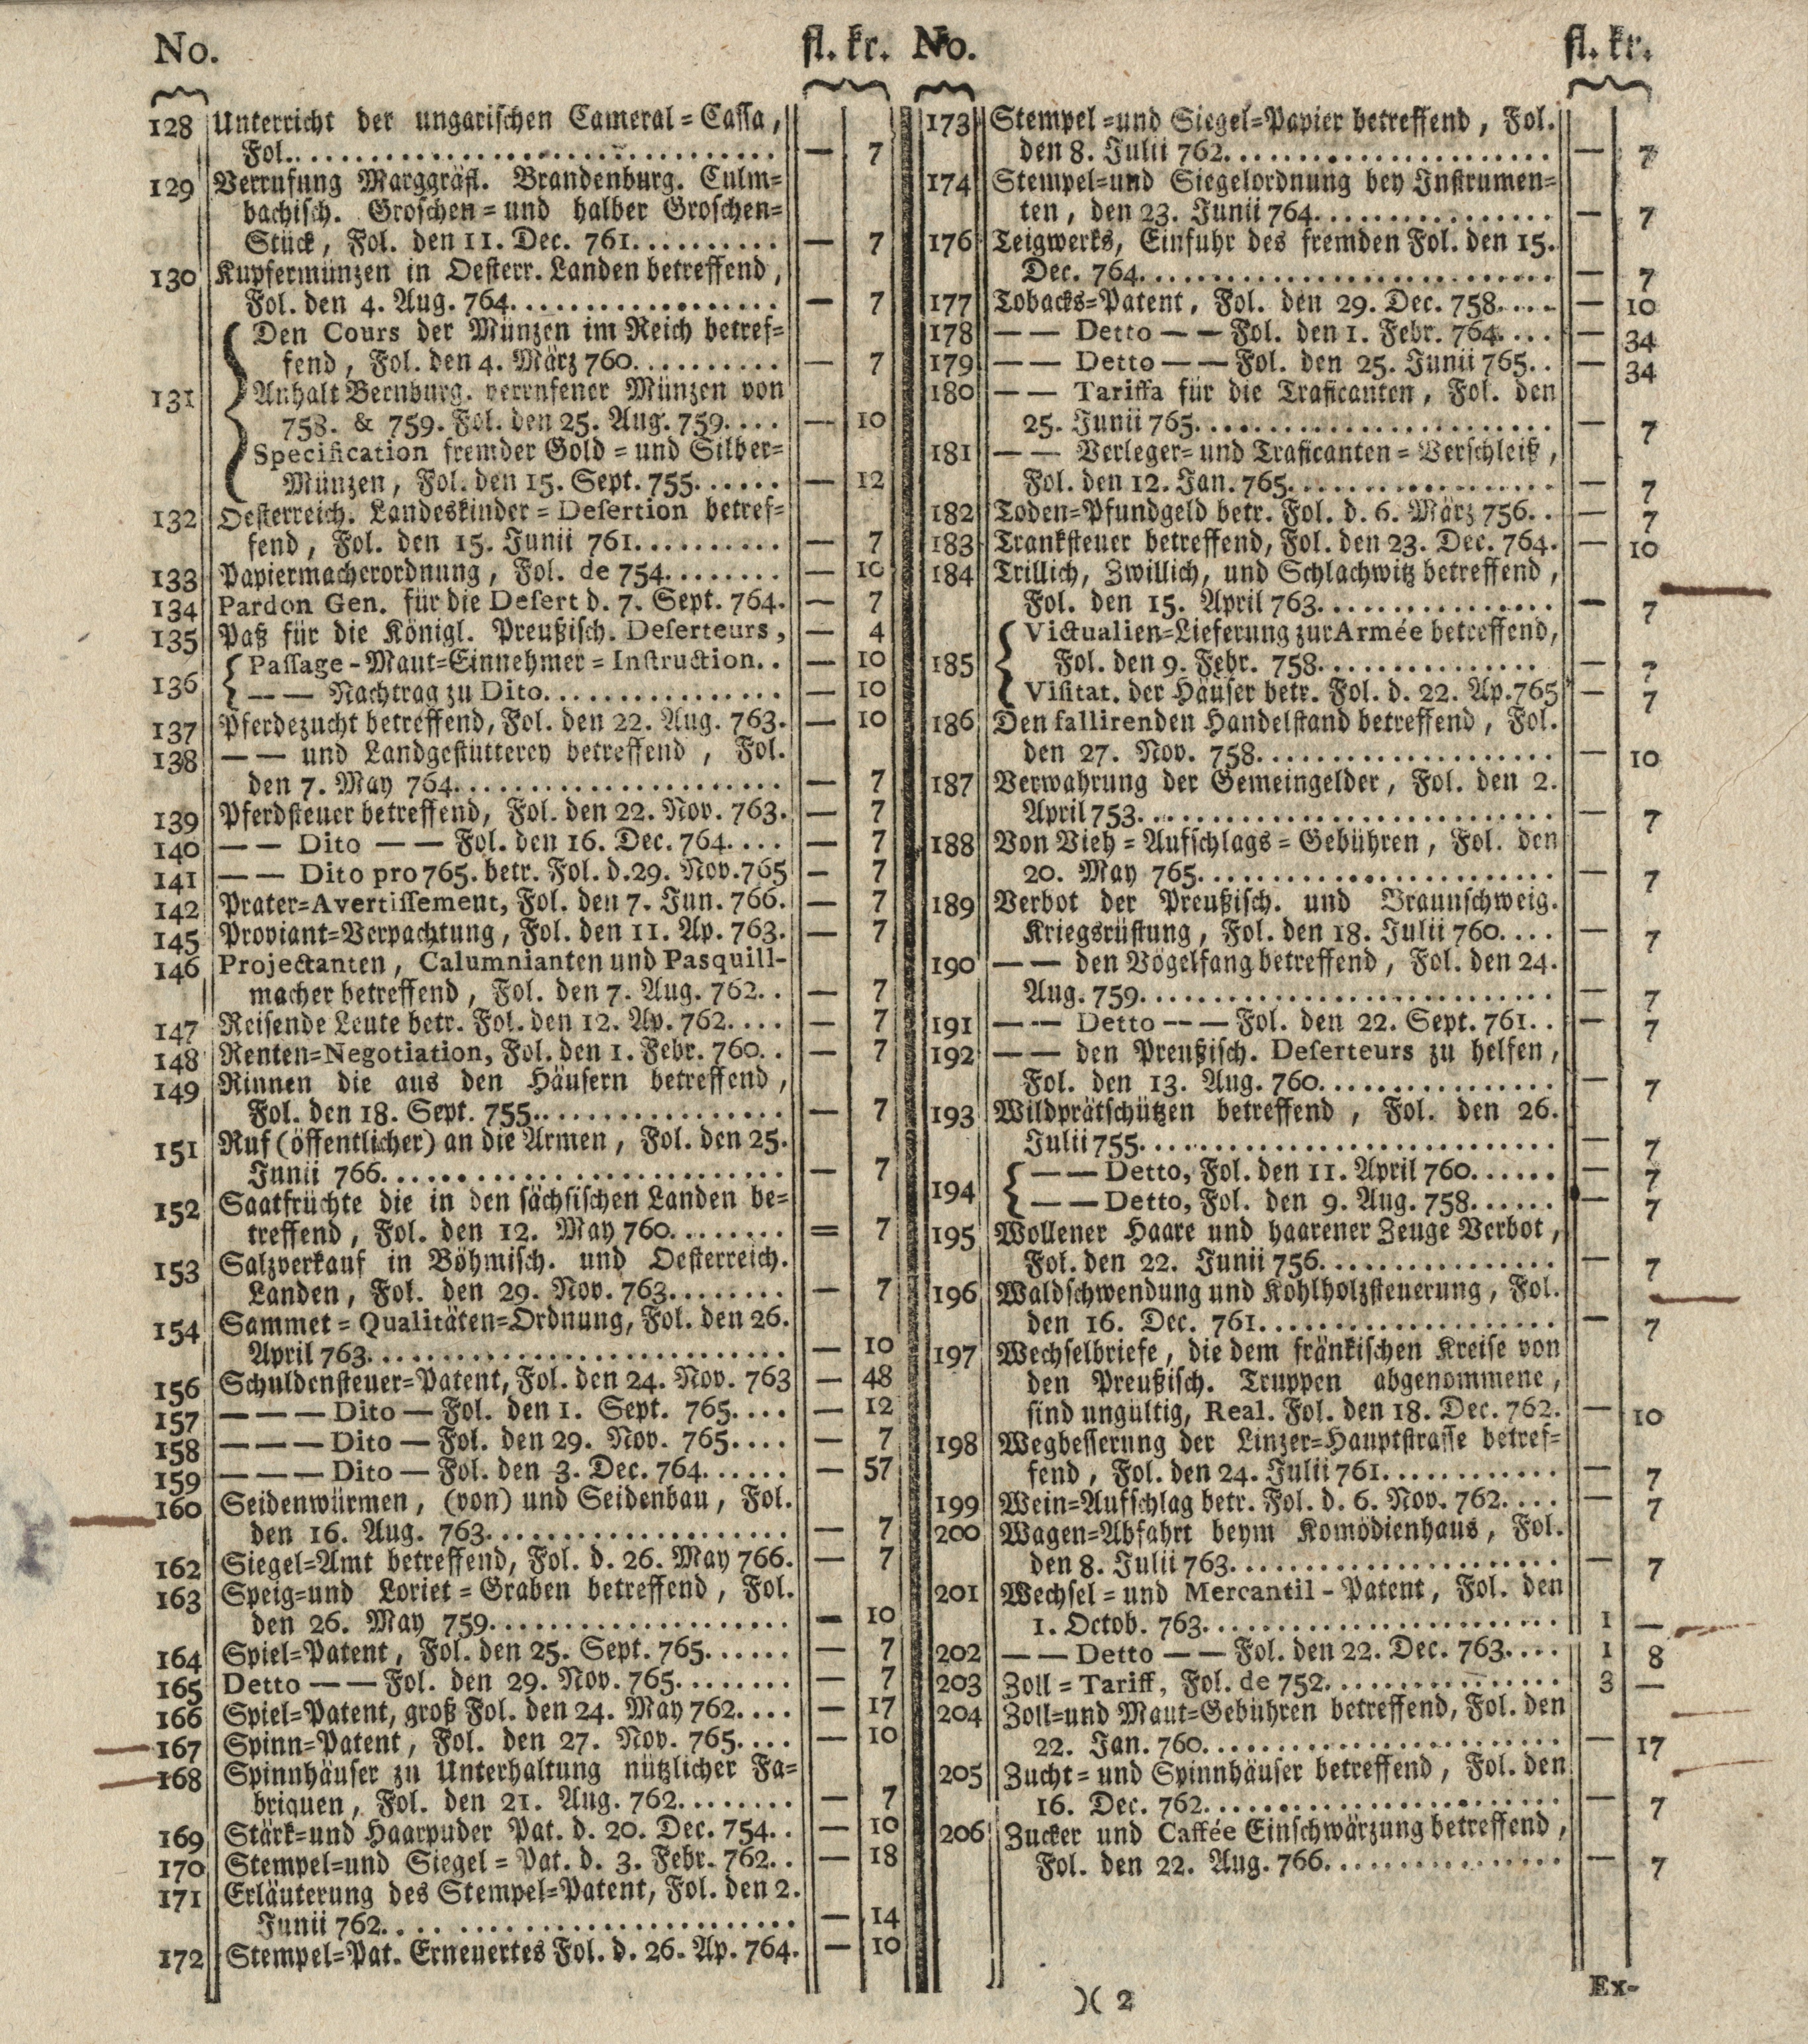 No. fl. kr.
128 Unterricht der ungarischen Cameral = Cassa,
Fol. — 7
129 Verrufung Marggräfl. Brandenburg. Culm=
bachisch. Groschen = und halber Groschen=
Stück, Fol. den 11. Dec. 761. — 7
130 Kupfermünzen in Oesterr. Landen betreffend,
Fol. den 4. Aug. 764. — 7
Den Cours der Münzen im Reich betref=
fend, Fol. den 4. März 760. — 7
131 Anhalt Bernburg. verrufener Münzen von
758. & 759. Fol. den 25. Aug. 759. — 10
Specification fremder Gold = und Silber=
Münzen, Fol. den 15. Sept. 755. — 12
132 Oesterreich. Landeskinder = Desertion betref=
fend, Fol. den 15. Junii 761. — 7
133 Papiermacherordnung, Fol. de 754. — 10
134 Pardon Gen. für die Desert d. 7. Sept. 764. — 7
135 Paß für die Königl. Preußisch. Deserteurs, — 4
136 Passage - Maut=Einnehmer = Instruction. — 10
— — Nachtrag zu Dito. — 10
137 Pferdezucht betreffend, Fol. den 22. Aug. 763. — 10
138 — — und Landgestütterey betreffend, Fol.
den 7. May 764. — 7
139 Pferdsteuer betreffend, Fol. den 22. Nov. 763. — 7
140 — — Dito — — Fol. den 16. Dec. 764. — 7
141 — — Dito pro 765. betr. Fol. d. 29. Nov. 765 — 7
142 Prater=Avertissement, Fol. den 7. Jun. 766. — 7
145 Proviant=Verpachtung, Fol. den 11. Ap. 763. — 7
146 Projectanten, Calumnianten und Pasquill-
macher betreffend, Fol. den 7. Aug. 762. — 7
147 Reisende Leute betr. Fol. den 12. Ap. 762. — 7
148 Renten=Negotiation, Fol. den 1. Febr. 760. — 7
149 Rinnen die aus den Häusern betreffend,
Fol. den 18. Sept. 755. — 7
151 Ruf (öffentlicher) an die Armen, Fol. den 25.
Junii 766. — 7
152 Saatfrüchte die in den sächsischen Landen be=
treffend, Fol. den 12. May 760. = 7
153 Salzverkauf in Böhmisch. und Oesterreich.
Landen, Fol. den 29. Nov. 763. — 7
154 Sammet = Qualitäten=Ordnung, Fol. den 26.
April 763. — 10
156 Schuldensteuer=Patent, Fol. den 24. Nov. 763 — 48
157 — — — Dito — Fol. den 1. Sept. 765. — 12
158 — — — Dito — Fol. den 29. Nov. 765. — 7
159 — — — Dito — Fol. den 3. Dec. 764. — 57
160 Seidenwürmen, (von) und Seidenbau, Fol.
den 16. Aug. 763. — 7
162 Siegel=Amt betreffend, Fol. d. 26. May 766. — 7
163 Speig=und Loriet = Graben betreffend, Fol.
den 26. May 759. — 10
164 Spiel=Patent, Fol. den 25. Sept. 765. — 7
165 Detto — — Fol. den 29. Nov. 765. — 7
166 Spiel=Patent, groß Fol. den 24. May 762. — 17
167 Spinn=Patent, Fol. den 27. Nov. 765. — 10
168 Spinnhäuser zu Unterhaltung nützlicher Fa=
briquen, Fol. den 21. Aug. 762. — 7
169 Stärk=und Haarpuder Pat. d. 20. Dec. 754. — 10
170 Stempel=und Siegel = Pat. d. 3. Febr. 762. — 18
171 Erläuterung des Stempel=Patent, Fol. den 2.
Junii 762. — 14
172 Stempel=Pat. Erneuertes Fol. d. 26. Ap. 764. — 10
No. fl. kr.
173 Stempel =und Siegel=Papier betreffend, Fol.
den 8. Julii 762. — 7
174 Stempel=und Siegelordnung bey Instrumen=
ten, den 23. Junii 764. — 7
176 Teigwerks, Einfuhr des fremden Fol. den 15.
Dec. 764. — 7
177 Tobacks=Patent, Fol. den 29. Dec. 758. — 10
178 — — Detto — — Fol. den 1. Febr. 764. — 34
179 — — Detto — — Fol. den 25. Junii 765. — 34
180 — — Tariffa für die Traficanten, Fol. den
25. Junii 765. — 7
181 — — Verleger= und Traficanten = Verschleiß,
Fol. den 12. Jan. 765. — 7
182 Toden=Pfundgeld betr. Fol. d. 6. März 756. — 7
183 Tranksteuer betreffend, Fol. den 23. Dec. 764. — 10
184 Trillich, Zwillich, und Schlachwitz betreffend,
Fol. den 15. April 763. — 7
185 Victualien=Lieferung zur Armée betreffend,
Fol. den 9. Febr. 758. — 7
Visitat. der Häuser betr. Fol. d. 22. Ap. 765 — 7
186 Den fallirenden Handelstand betreffend, Fol.
den 27. Nov. 758. — 10
187 Verwahrung der Gemeingelder, Fol. den 2.
April 753. — 7
188 Von Vieh = Aufschlags = Gebühren, Fol. den
20. May 765. — 7
189 Verbot der Preußisch. und Braunschweig.
Kriegsrüstung, Fol. den 18. Julii 760. — 7
190 — — den Vogelfang betreffend, Fol. den 24.
Aug. 759. — 7
191 — — Detto — — Fol. den 22. Sept. 761. — 7
192 — — den Preußisch. Deserteurs zu helfen,
Fol. den 13. Aug. 760. — 7
193 Wildprätschützen betreffend, Fol. den 26.
Julii 755. — 7
194 — — Detto, Fol. den 11. April 760. — 7
— — Detto, Fol. den 9. Aug. 758. — 7
195 Wollener Haare und haarener Zeuge Verbot,
Fol. den 22. Junii 756. — 7
196 Waldschwendung und Kohlholzsteuerung, Fol.
den 16. Dec. 761. — 7
197 Wechselbriefe, die dem fränkischen Kreise von
den Preußisch. Truppen abgenommene,
sind ungültig, Real. Fol. den 18. Dec. 762. — 10
198 Wegbesserung der Linzer=Hauptstrasse betref=
fend, Fol. den 24. Julii 761. — 7
199 Wein=Aufschlag betr. Fol. d. 6. Nov. 762. — 7
200 Wagen=Abfahrt beym Komödienhaus, Fol.
den 8. Julii 763. — 7
201 Wechsel = und Mercantil - Patent, Fol. den
1. Octob. 763. 1 —
202 — — Detto — — Fol. den 22. Dec. 763. 1 8
203 Zoll = Tariff, Fol. de 752. 3 —
204 Zoll=und Maut=Gebühren betreffend, Fol. den
22. Jan. 760. — 17
205 Zucht = und Spinnhäuser betreffend, Fol. den
16. Dec. 762. — 7
206 Zucker und Caffée Einschwärzung betreffend,
Fol. den 22. Aug. 766. — 7
)( 2
Ex-